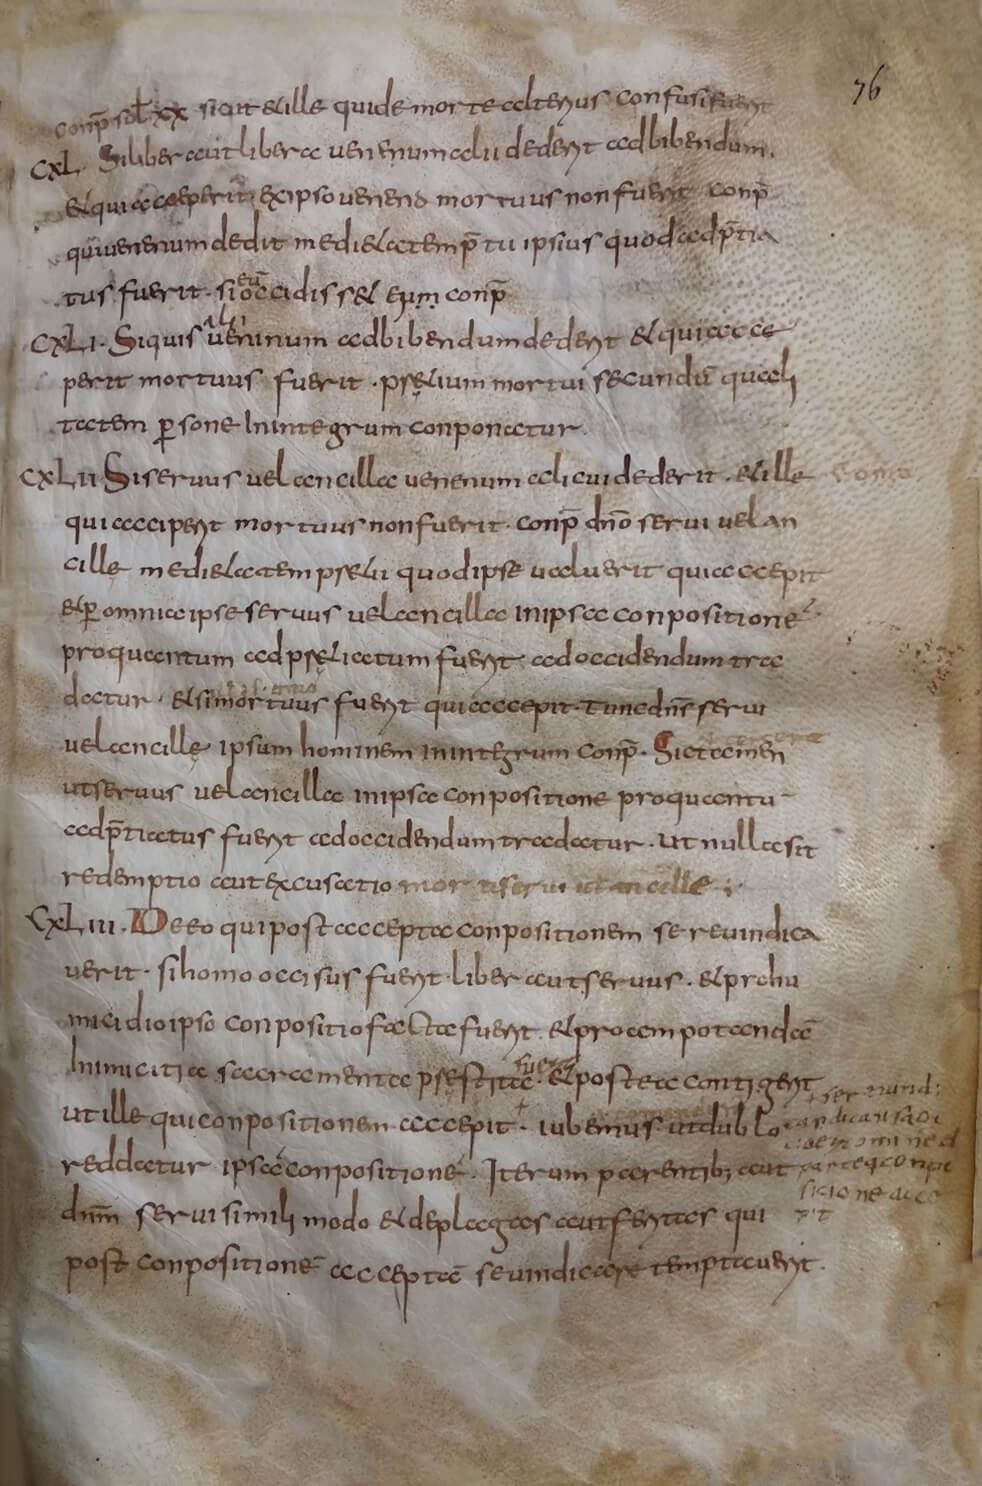 76
conp̄ sol̄ xx sicut et ille qui de morte alterius confusi fuerit
CXL. Si liber aut libera uenenum alii dederit ad bibendum.
et qui acceperit ex ipso ueneno mortuus non fuerit conp̄
qui uenenum dedit medietatem p̄tii ipsius quod adp̄tia
tus fuerit. si eū occidisset eum conp̄
CXLI. Siquis alii uenenum ad bibendum dederit et qui acce
perit mortuus fuerit. pretium mortui secundū quali
tatem p̱sone In integrum conponatur.
CXLII Si seruus uel ancilla uenenum alicui dederit. et ille
qui acciperit mortuus non fuerit. conp̄ dn̄o serui uel an
cille medietatem pretii quod ipse ualuerit qui accepit
et p̱ omnia ipse seruus uel ancilla in ipsa conpositione
pro quantum adpretiatum fuerit ad occidendum tra
datur. et si mortuus fuerit qui accepit. tunc dn̄s serui
uel ancille ipsum hominem in integrum conp̄. Sic tamen
ut seruus uel ancilla in ipsa conpositione pro quantū
adp̄tiatus fuerit ad occidendum tradatur. ut nulla sit
redemptio aut excusatio mortis serui uel ancille
CXLIII. De eo qui post accepta conpositionem se reuindica
uerit. si homo occisus fuerit liber aut seruus. et pro hu
micidio ipso conpositio facta fuerit. et pro amputandā
Inimicitia sacramenta prestita fuerint. et postea contigerit
ut ille qui conpositionem accepit + iubemus ut dublo
reddatur ipsā conpositionē. Iterum parentib; aut
dn̄m serui simili modo et de plagas aut feritas qui
post conpositionē acceptā se uindicare temptauerit.